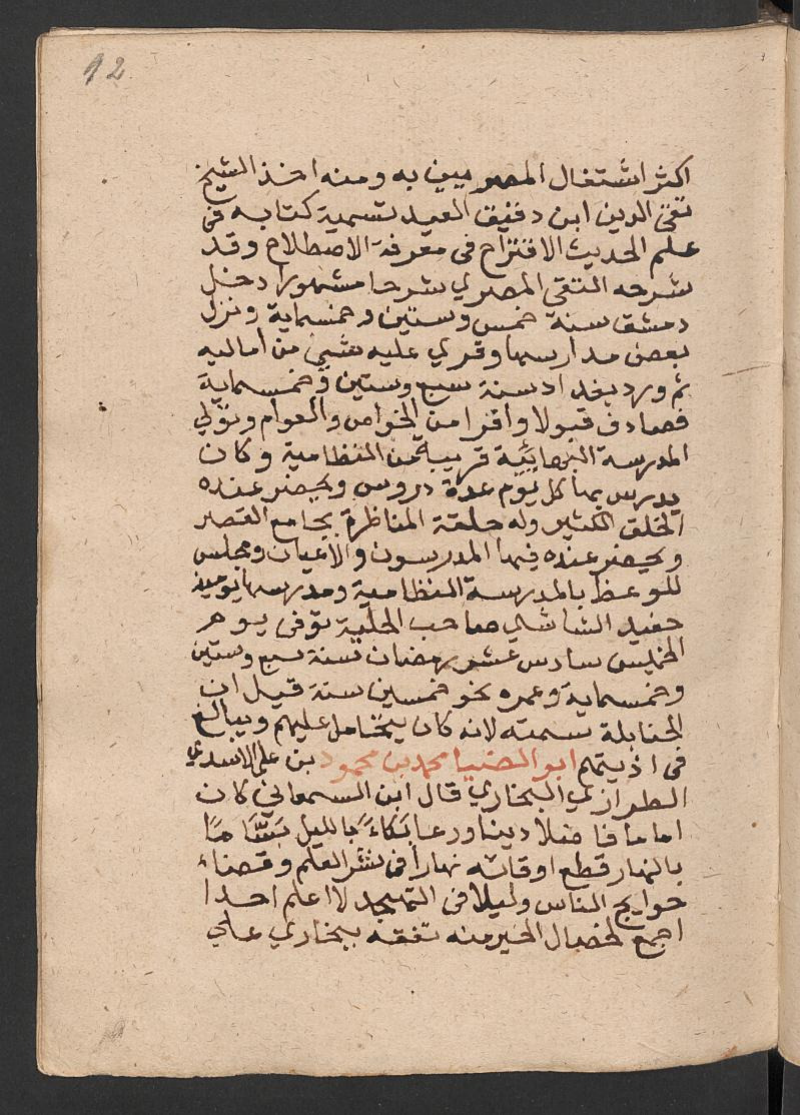 12
اكثر اشتغال المصريين به ومنه اخذ الشيخ
تقي الدين ابن دقيق العيد تسمية كتابه في
علم الحديث الاقتراح في معرفة الاصطلاح وقد
شرحه التقي المصري شرحا مشهورا دخل
دمشق سنة خمس وستين وخمسماية ونزل
بعض مدارسها وقري عليه شيي من اماليه
ثم ورد بغداد سنة سبع وستين وخمسماية
فصادف قبولا وافرا من الخواص والعوام وتولي
المدرسة البهائية قريبة من النظامية وكان
يدرس بها كل يوم عدة دروس ويحضر عنده
الخلق الكثير وله حلقة المناظرة بجامع القصر
ويحضر عنده فيها المدرسون والاعيان ومجلس
للوعظ بالمدرسة النظامية ومدرسها يوميذ
حفيد الشاشي صاحب الحلية توفي يوم
الخميس سادس عشر رمضان سنة سبع وستين
وخمسماية وعمره نحو خمسين سنة قيل ان
الحنابلة سمته لانه كان يتحامل عليهم ويبالغ
في اذيتهم ابو الضيا محمد بن محمود بن علي الاسدي
الطرازي البخاري قال ابن السمعاني كان
اماما فاضلا دينا ورعا بكاءً بالليل بسّامًا
بالنهار قطع اوقاته نهاراً في نشر العلم وقضاء
حوايج الناس وليلا في التهجد لا اعلم احدا
اجمع لخصال الخير منه تفقه ببخاري علي